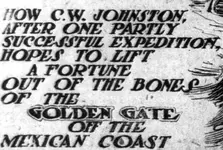 HOW C.W. JOHNSTON,
AFTER ONE PARTLY
SUCCESSFUL EXPEDITION,
HOPES TO LIFT
A FORTUNE
OUT OF THE BONES
OF THE
GOLDEN GATE
OFF THE
MEXICAN COAST